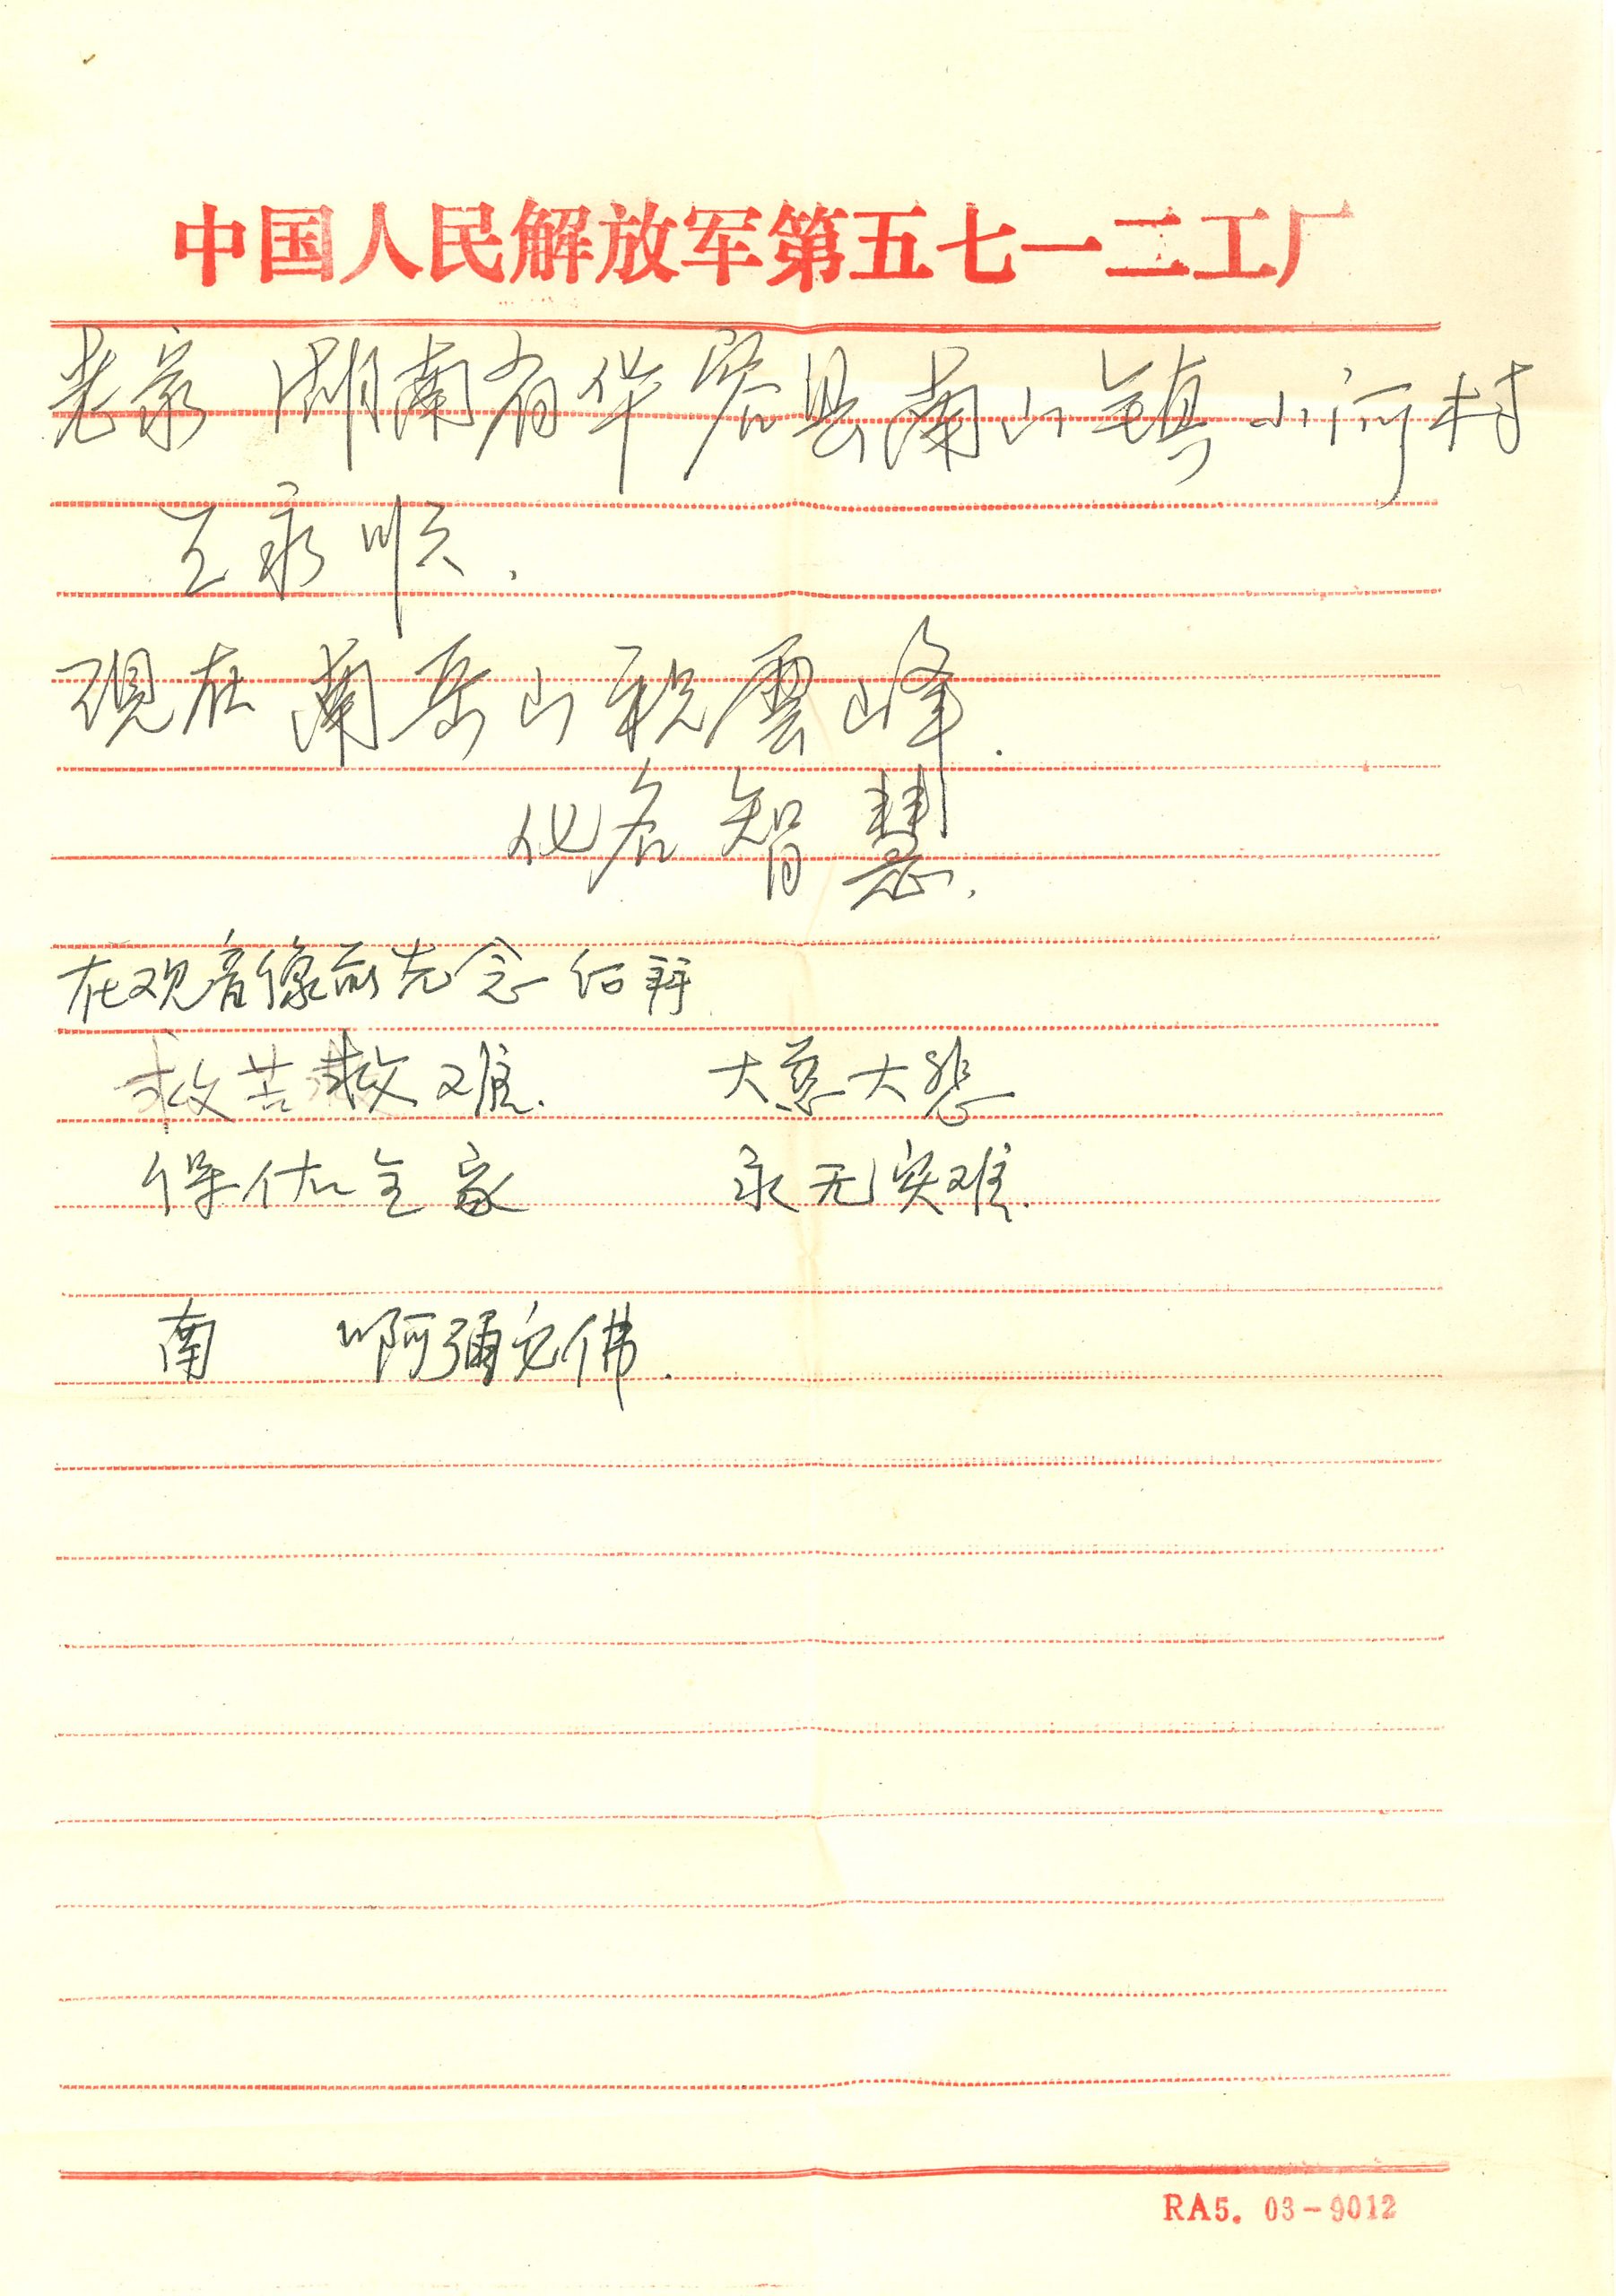 中国人民解放军第五七一二工厂
老家 湖南省华容县南山镇小河村
王永顺.
现在南岳山祝雲峰.
化名智慧.
在观音像前先念后拜
救苦救难. 大慈大悲
保佑全家 永无灾难.
南 啊弥陀佛.
RA5. 03-9012